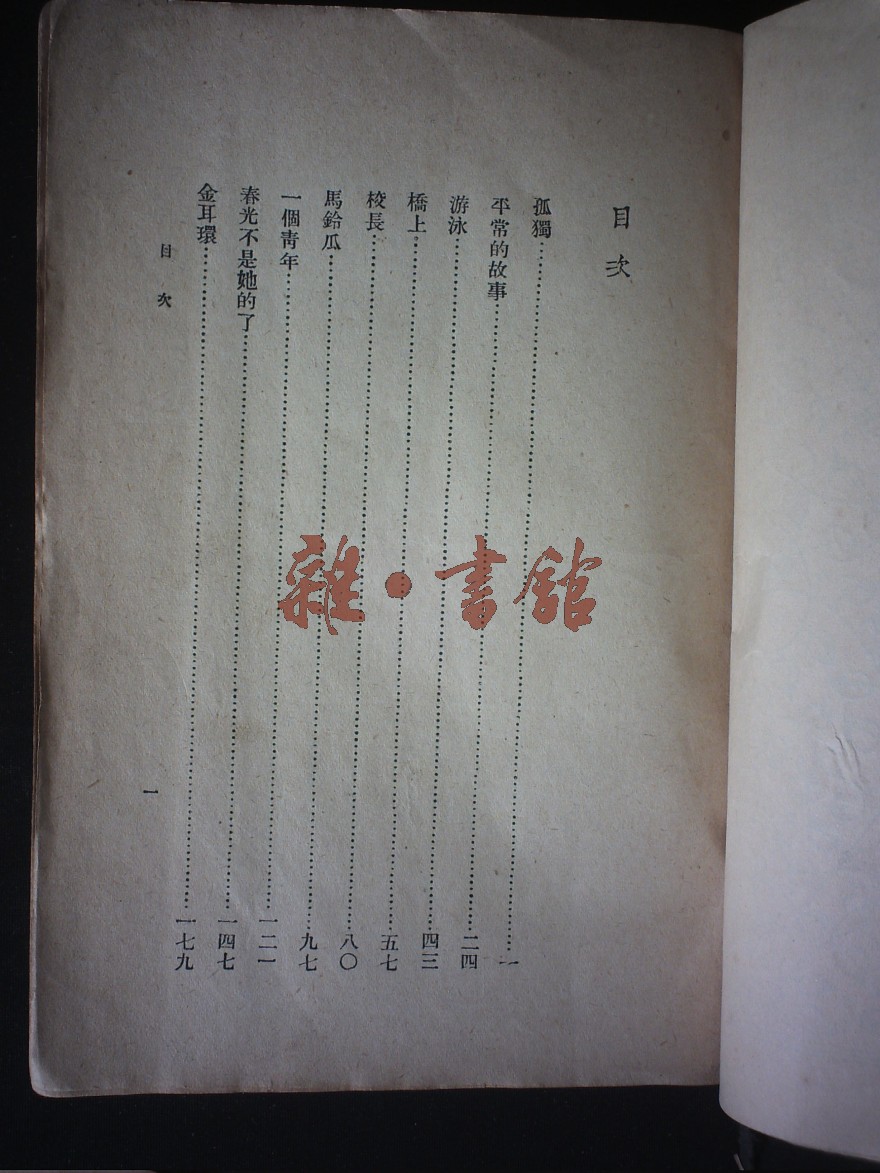 目次
孤獨……一
平常的故事……二四
游泳……四三
橋上……五七
校長……八〇
馬鈴瓜……九七
一個青年……一二一
春光不是她的了……一四七
金耳環……一七九
目次
一
雜·書館